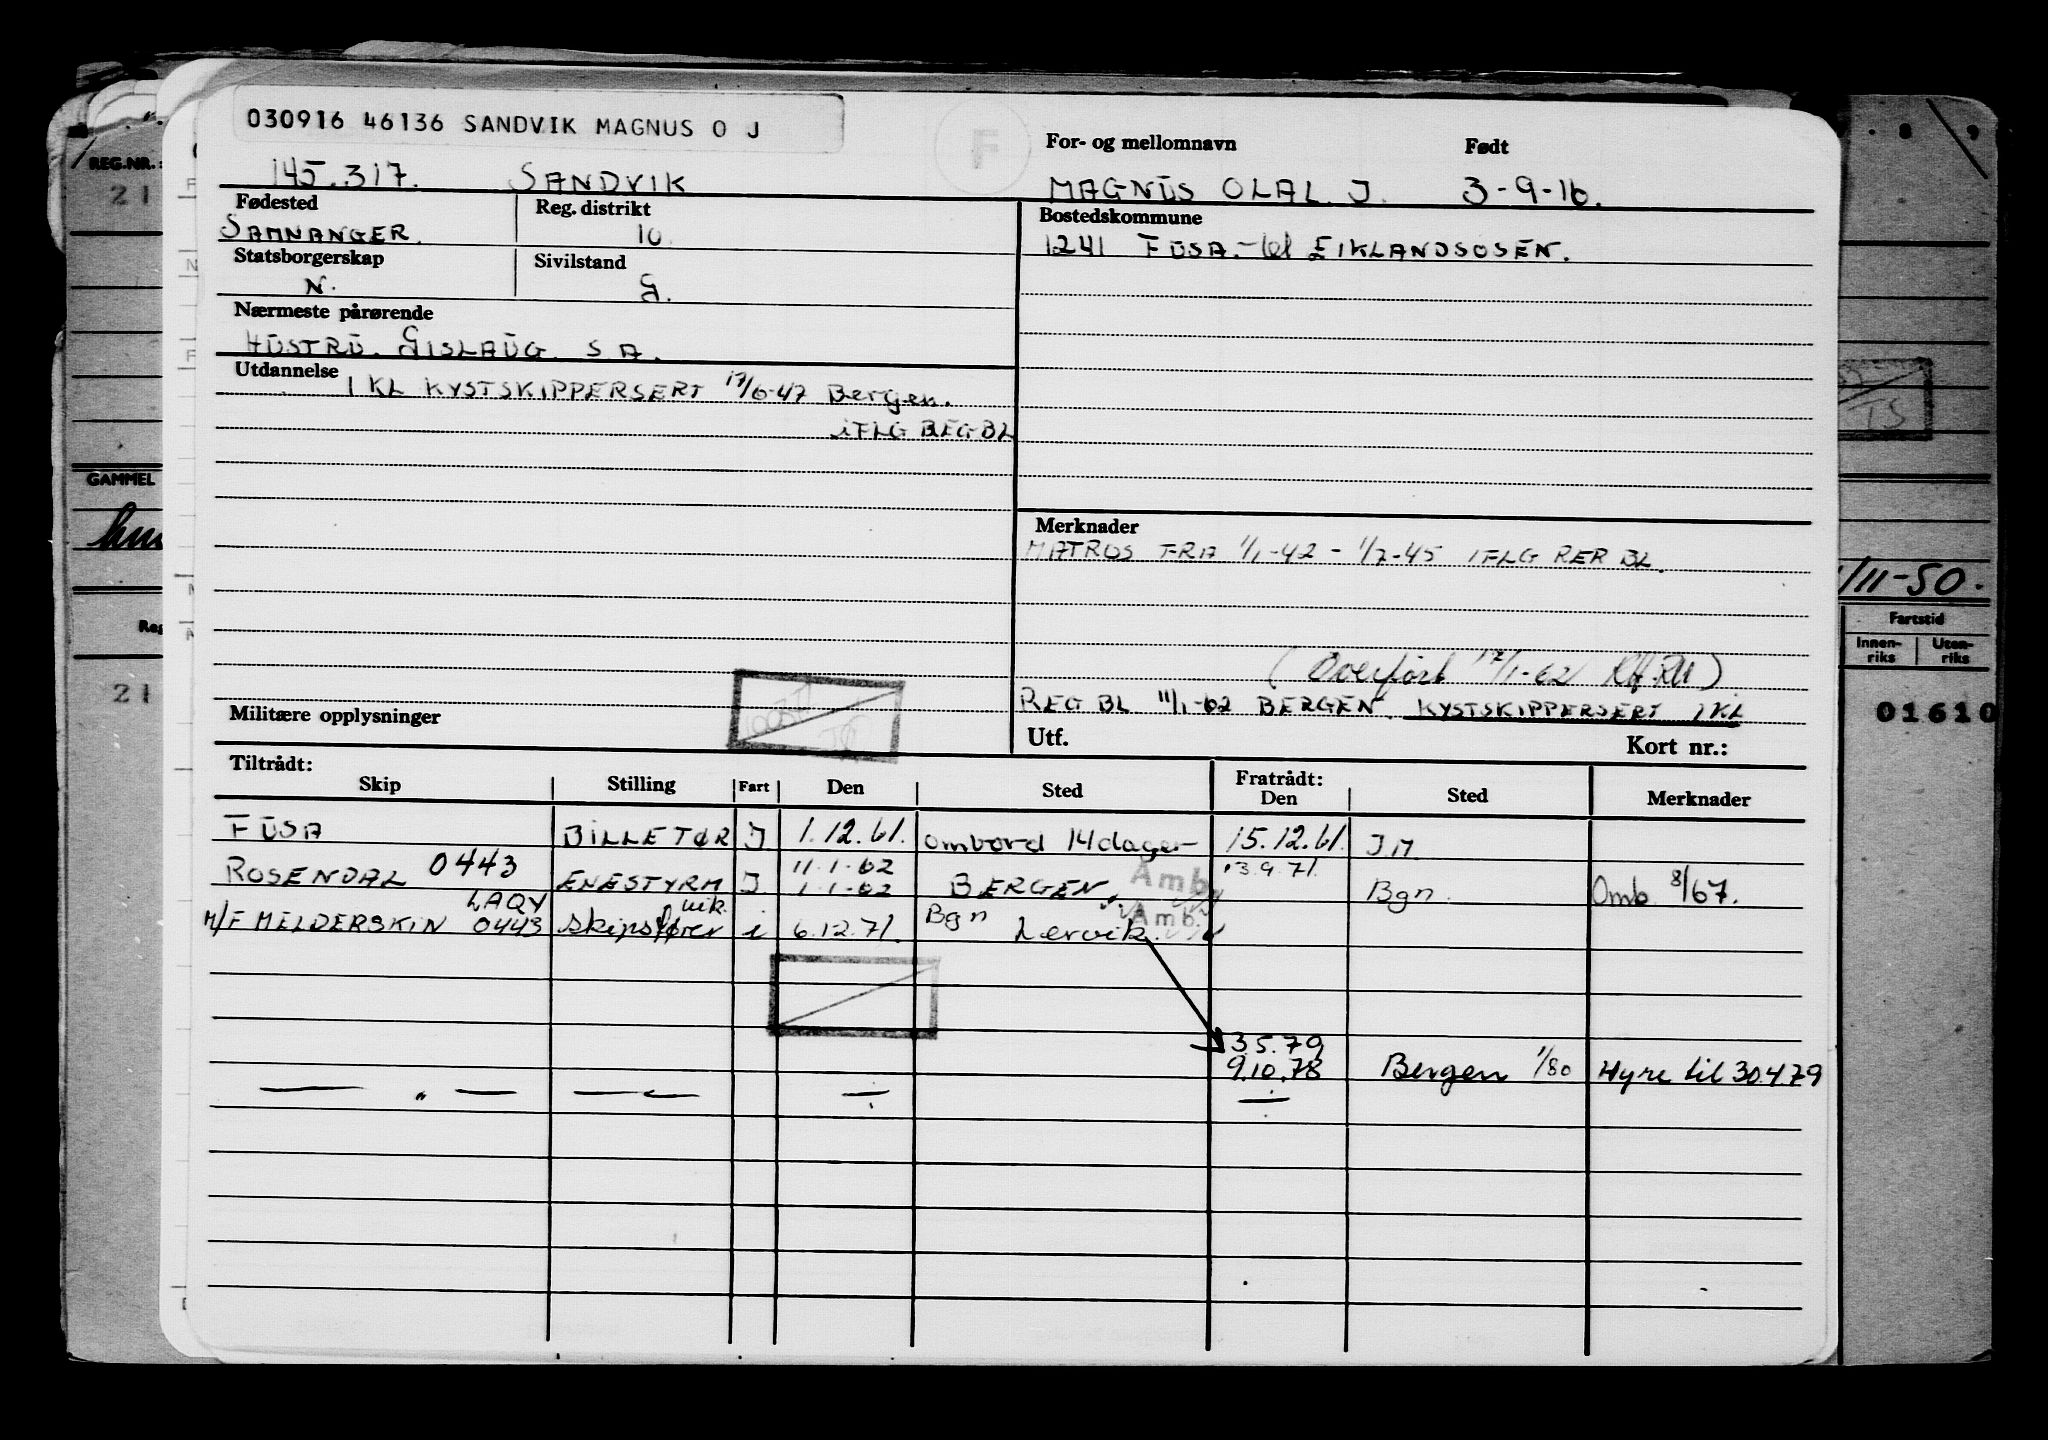 030916 46136 SANDVIK MAGNUS O J
F
For- og mellomnavn Født
145.317. SANDVIK MAGNUS OLAL. J. 3-9-16.
Fødested Reg. distrikt Bostedskommune
SAMNANGER. 10 1241 FUSA.- EIKLANDSOSEN.
Statsborgerskap Sivilstand
N. G.
Nærmeste pårørende
HUSTRU. GISLAUG. S.A.
Utdannelse 1 KL KYSTSKIPPERSERT 17/6-47 Bergen.
iFLG REG BL
Merknader
MATROS FRA 1/1-42 - 1/7-45 IFLG RER BL.
(Overført 17/1-62)
REG BL 11/1-62 BERGEN. KYSTSKIPPERSERT 1KL
Militære opplysninger Utf. Kort nr.:
Tiltrådt: Fratrådt:
Skip Stilling Fart Den Sted Den Sted Merknader
FUSA BILLETØR J 1.12.61. ombord 14 dager- 15.12.61. J.M.
11.1-62 Amb 3.9.71.
ROSENDAL 0443 ENESTYRM J 1-1-62 BERGEN Bgn. Omb 8/67.
LAQY vik. Bgn Amb.
M/F MELDERSKIN 0443 Skipsfører i 6.12.71. Lervik.
3.5.79
9.10.78 Bergen 1/80 Hyre til 30.4.79
— „ —
REG.NR.:
21
GAMMEL
Reg
21
8 9
TS
/11-50.
Fartstid
Innen-riks Uten-riks
01610